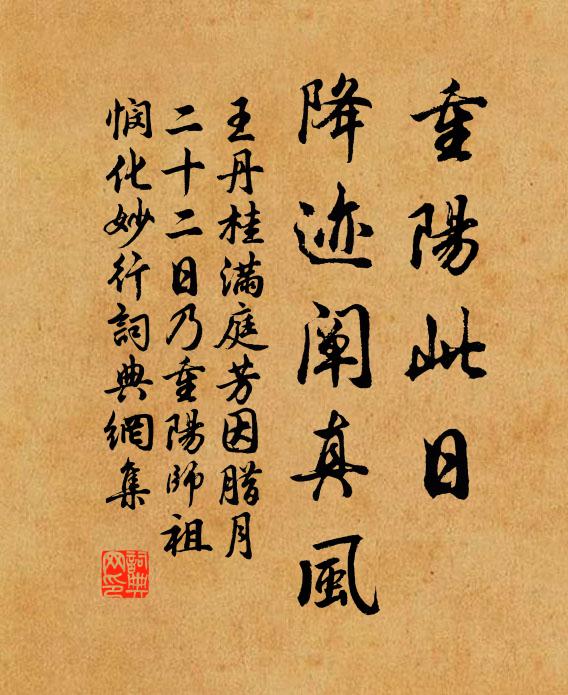 重陽此日
降迹阐真風
王丹桂滿庭芳因腊月
二十二日乃重陽師祖
悯化妙行詞典網集
詞典网印